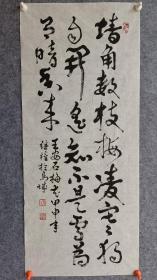 墙角数枝梅凌寒独
自开遥知不是雪为
有暗香来
王安石梅花甲申年